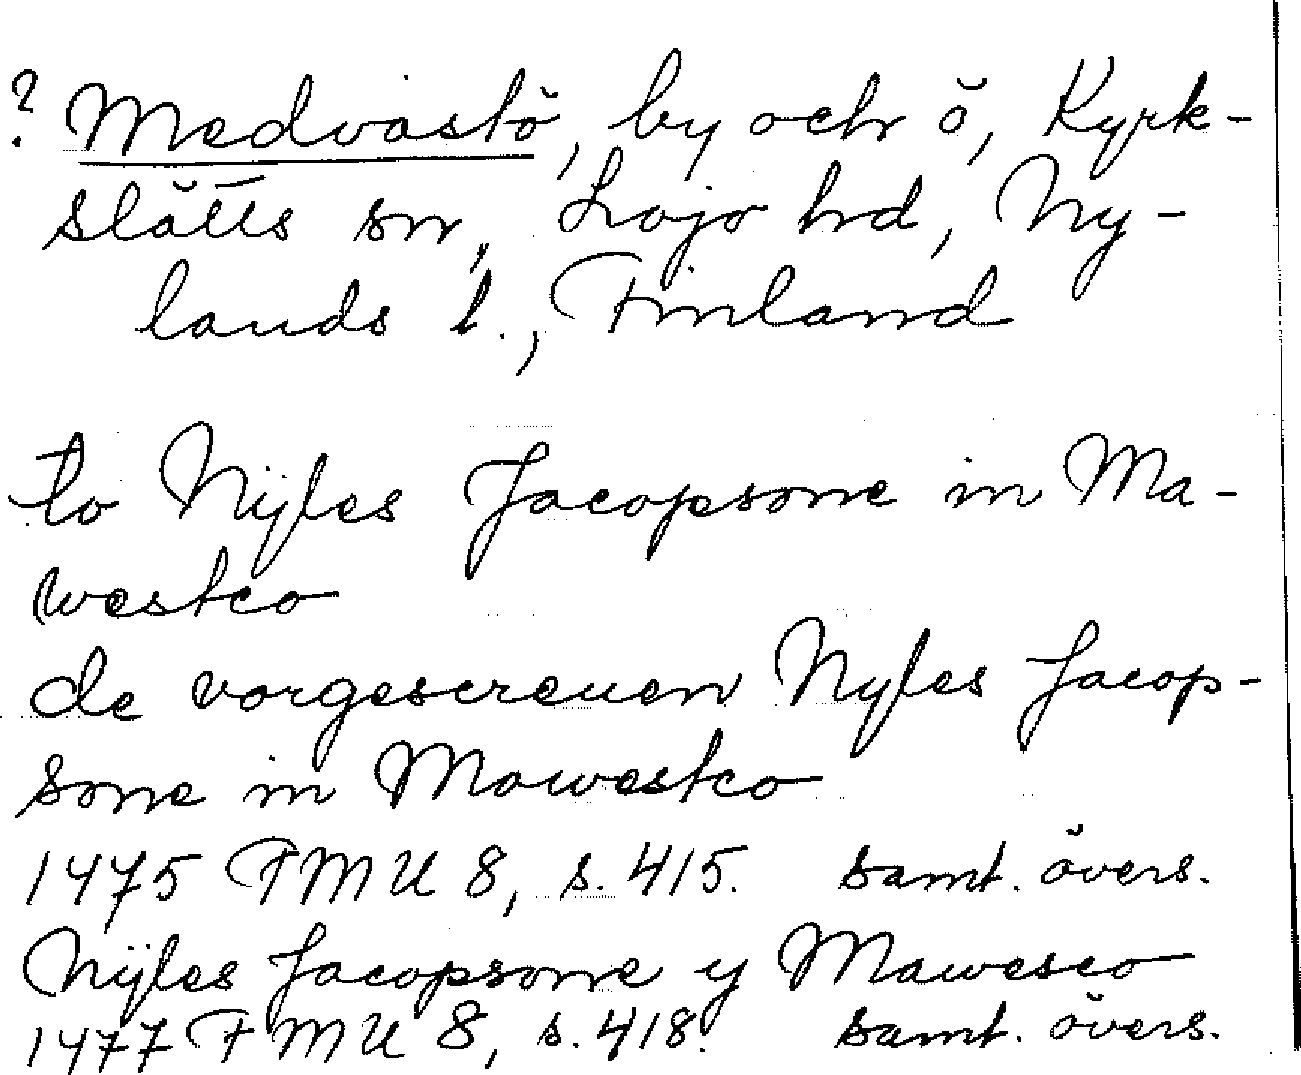 ? Medvastö, by och ö, Kyrk-
slätts sn, Lojo hd, Ny-
lands l., Finland
to Nijles Jacopsone in Ma-
westco
de vorgescreuen Nyles Jacop-
sone in Mawestco
1475 FMU 8, s. 415. samt. övers.
Nijles Jacopsone y Mawesco
1477 FMU 8, s. 418. samt. övers.